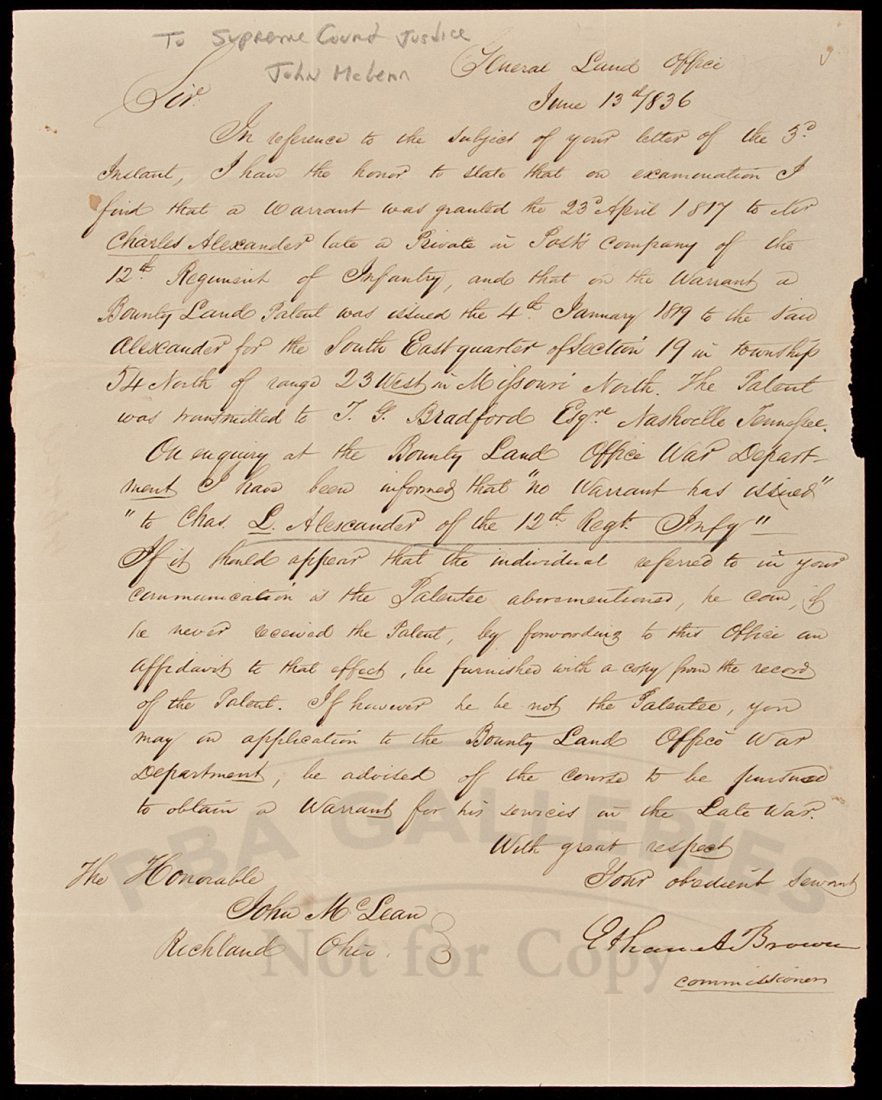 To Supreme Court Justice
John McLean
General Land Office
June 13th 1836
Sir
In reference to the subject of your letter of the 3d
Instant, I have the honor to state that on examination I
find that a Warrant was granted the 23d April 1817 to
Charles Alexander late a Private in Posts company of the
12th Regiment of Infantry, and that on the Warrant a
Bounty Land Patent was issued the 4th January 1819 to the said
Alexander for the South East quarter of Section 19 in township
54 North of range 23 West in Missouri North. The Patent
was transmitted to T. G. Bradford Esqre Nashville Tennessee.
On enquiry at the Bounty Land Office War Depart-
ment I have been informed that "no Warrant has issued"
"to Chas. L. Alexander of the 12th Regt. Infy"
If it should appear that the individual referred to in your
communication is the Patentee abovementioned, he can, if
he never received the Patent, by forwarding to this Office an
affidavit to that effect, be furnished with a copy from the record
of the Patent. If however he be not the Patentee, you
may on application to the Bounty Land Office War
Department, be advised of the course to be pursued
to obtain a Warrant for his services in the Late War.
With great respect
Your obedient servant
Ethan A. Brown
commissioner
The Honorable
John McLean
Richland Ohio.
PBA GALLERIES
Not for Copy